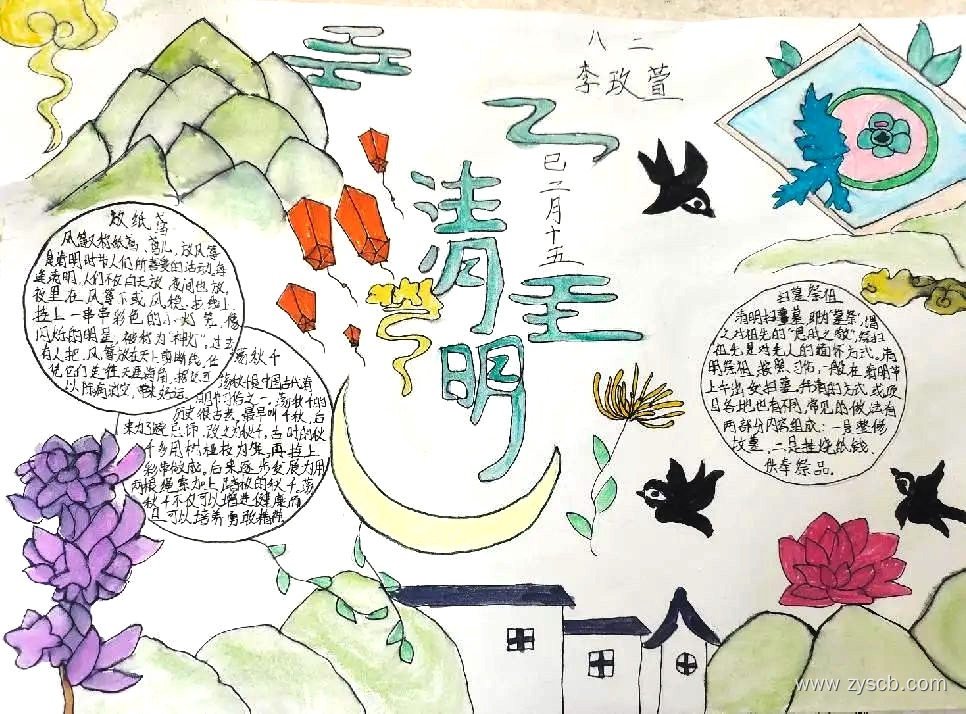 八 二
李玫萱
乙
巳二月十五
清
明
至
放纸鸢
风筝又称纸鸢、鸢儿,放风筝
是清明时节人们所喜爱的活动,每
逢清明,人们不仅白天放,夜间也放,
夜里在风筝下或风稳
挂上一串串彩色的小灯笼,像
闪烁的明星,被称为"神灯",过去
有人把风筝放在天上剪断线,任
凭它们走往天涯海角,据说
荡秋千
荡秋千是中国古代清
明节习俗之一。荡秋千的
历史很古老,最早叫千秋,后
忌讳,改之为秋千,古时的秋
千多用树桠枝为架,再拴上
彩带做成。后来逐步发展为用
两根绳索加上踏板的秋千。荡
秋千不仅可以增进健康,而
且可以培养勇敢精神
扫墓祭祖
清明扫墓,即"墓祭",谓
之对祖先的"思时之敬",祭扫
祖先是对先人的缅怀方式。清
明祭祖,按照习俗,一般在清明节
上午出发扫墓,扫墓的方式或项
目各地也有不同,常见的做法有
两部分内容组成:一是整修
坟墓,二是挂烧纸钱、
供奉祭品。
www.zyscb.com